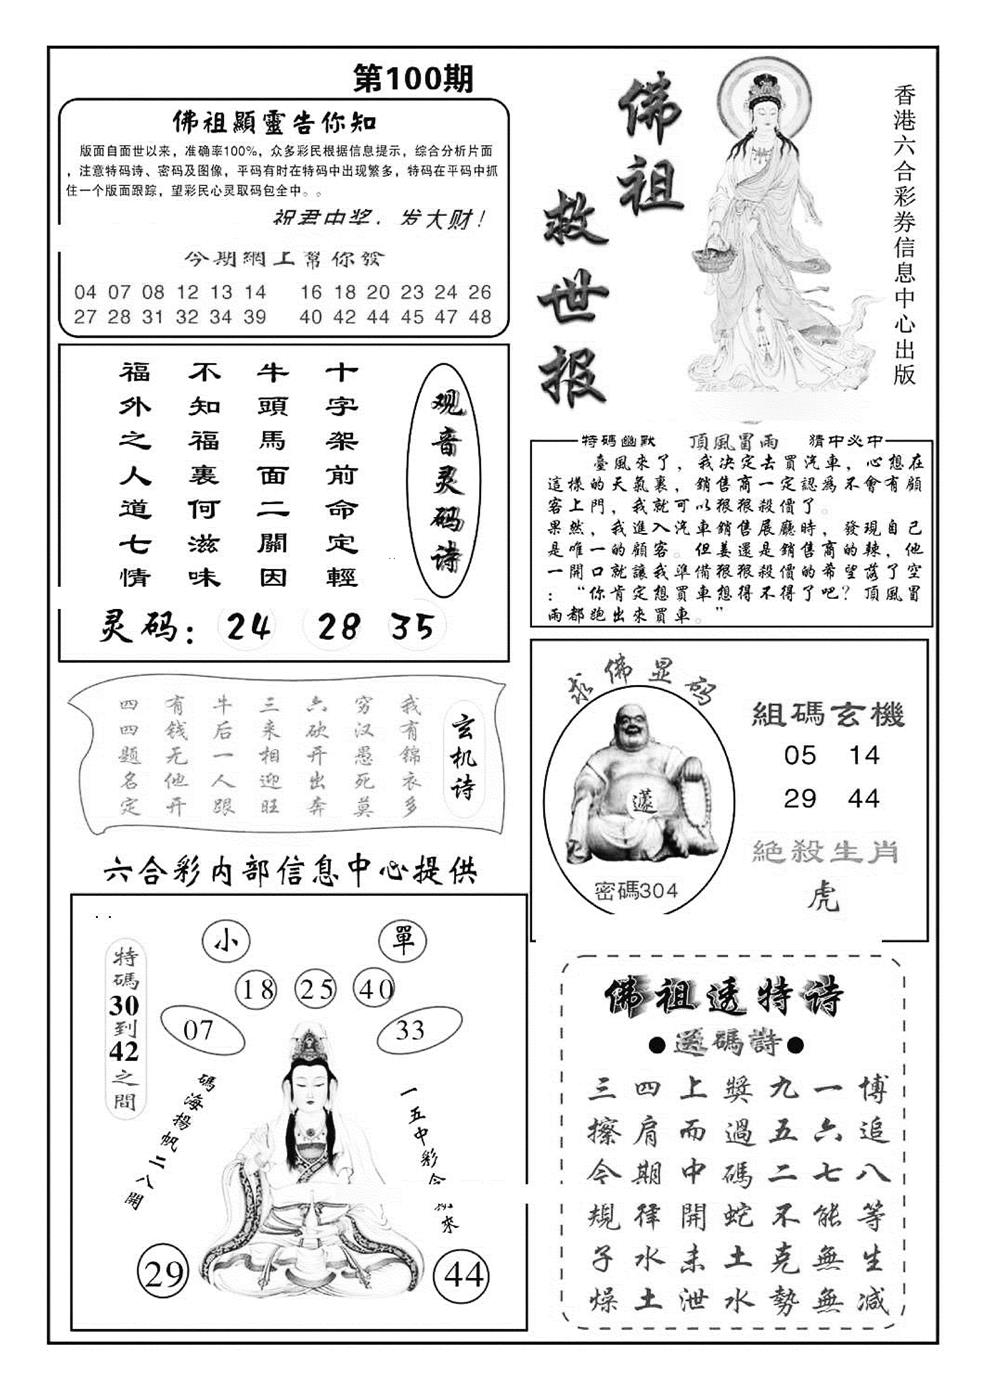 第100期
佛祖顯靈告你知
版面自面世以来，准确率100%，众多彩民根据信息提示，综合分析片面
，注意特码诗、密码及图像，平码有时在特码中出现繁多，特码在平码中抓
住一个版面跟踪，望彩民心灵取码包全中。。
祝君中奖，发大财！
今期網上幫你發
04 07 08 12 13 14 16 18 20 23 24 26
27 28 31 32 34 39 40 42 44 45 47 48
佛祖
救世报
香港六合彩券信息中心出版
观音灵码诗
十字架前命定輕
牛頭馬面二關因
不知福裏何滋味
福外之人道七情
灵码：24 28 35
特碼幽默 頂風冒雨 猜中必中
臺風來了，我决定去買汽車，心想在
這樣的天氣裏，銷售商一定認爲不會有顧
客上門，我就可以狠狠殺價了。
果然，我進入汽車銷售展廳時，發現自己
是唯一的顧客。但姜還是銷售商的辣，他
一開口就讓我準備狠狠殺價的希望落了空
：“你肯定想買車想得不得了吧？頂風冒
雨都跑出來買車。”
玄机诗
我有锦衣多
穷汉愚死莫
六砍开出奔
三来相迎旺
牛后一人跟
有钱无他开
四四题名定
求佛显码
密碼304
組碼玄機
05 14
29 44
絕殺生肖
虎
六合彩内部信息中心提供
小
單
18 25 40
07
33
特碼30到42之間
碼海揚帆二八開
一五中彩今期來
29
44
佛祖透特诗
●透碼詩●
博追八等生減
一六七能無無
九五二不克勢
獎過碼蛇土水
上而中開未泄
四肩期律水土
三擦今規子燥